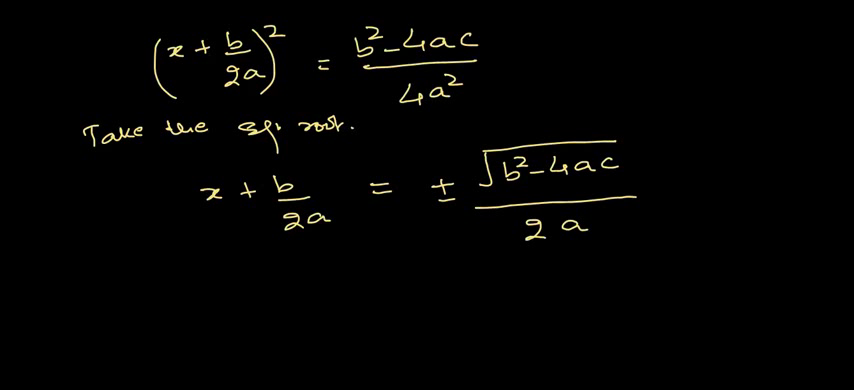 (x + b/2a)² = b² - 4ac / 4a²
Take the sq. root.
x + b/2a = ± √(b² - 4ac) / 2a